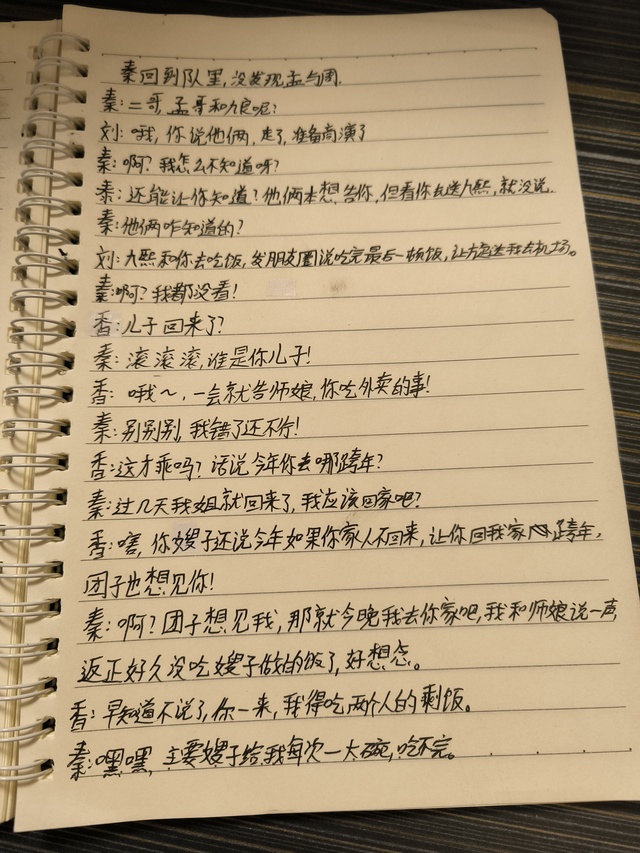 秦回到队里,没发现孟与周.
秦:二哥,孟哥和九良呢?
刘:哦,你说他俩,走了,准备商演了
秦:啊?我怎么不知道呀?
秦:还能让你知道?他俩本想告你,但看你去送九熙,就没说.
秦:他俩咋知道的?
刘:九熙和你去吃饭,发朋友圈说吃完最后一顿饭,让送我去机场。
秦:啊?我都没看!
香:儿子回来了?
秦:滚滚滚,谁是你儿子!
香:哦~,一会就告师娘,你吃外卖的事!
秦:别别别,我错了还不行!
香:这才乖吗?话说今年你去哪跨年?
秦:过几天我姐就回来了,我应该回家吧?
香:害,你嫂子还说今年如果你家人不回来,让你回我家跨年,
团子也想见你!
秦:啊?团子想见我,那就今晚我去你家吧,我和师娘说一声,
返正好久没吃嫂子做的饭了,好想念。
香:早知道不说了,你一来,我得吃两个人的剩饭。
秦:嘿嘿,主要嫂子给我每次一大碗,吃不完。